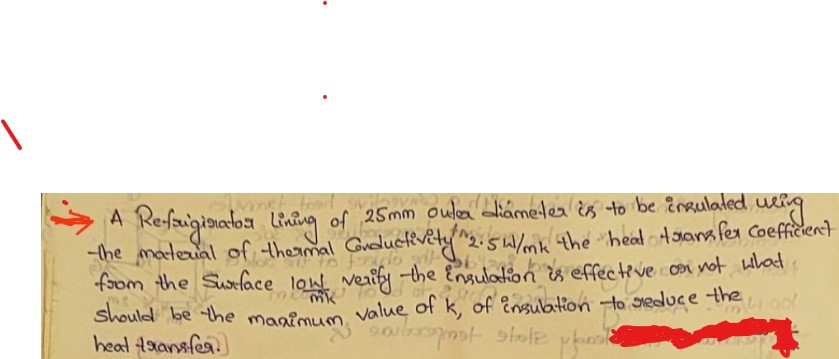 A Refrigirator lining of 25mm outer diameter is to be insulated using
the material of thermal Conductivity 2.5W/mk the heat transfer coefficient
from the Surface 10 W/m²k verify the insulation is effective or not what
should be the maximum value of k, of insulation to reduce the
heat transfer.